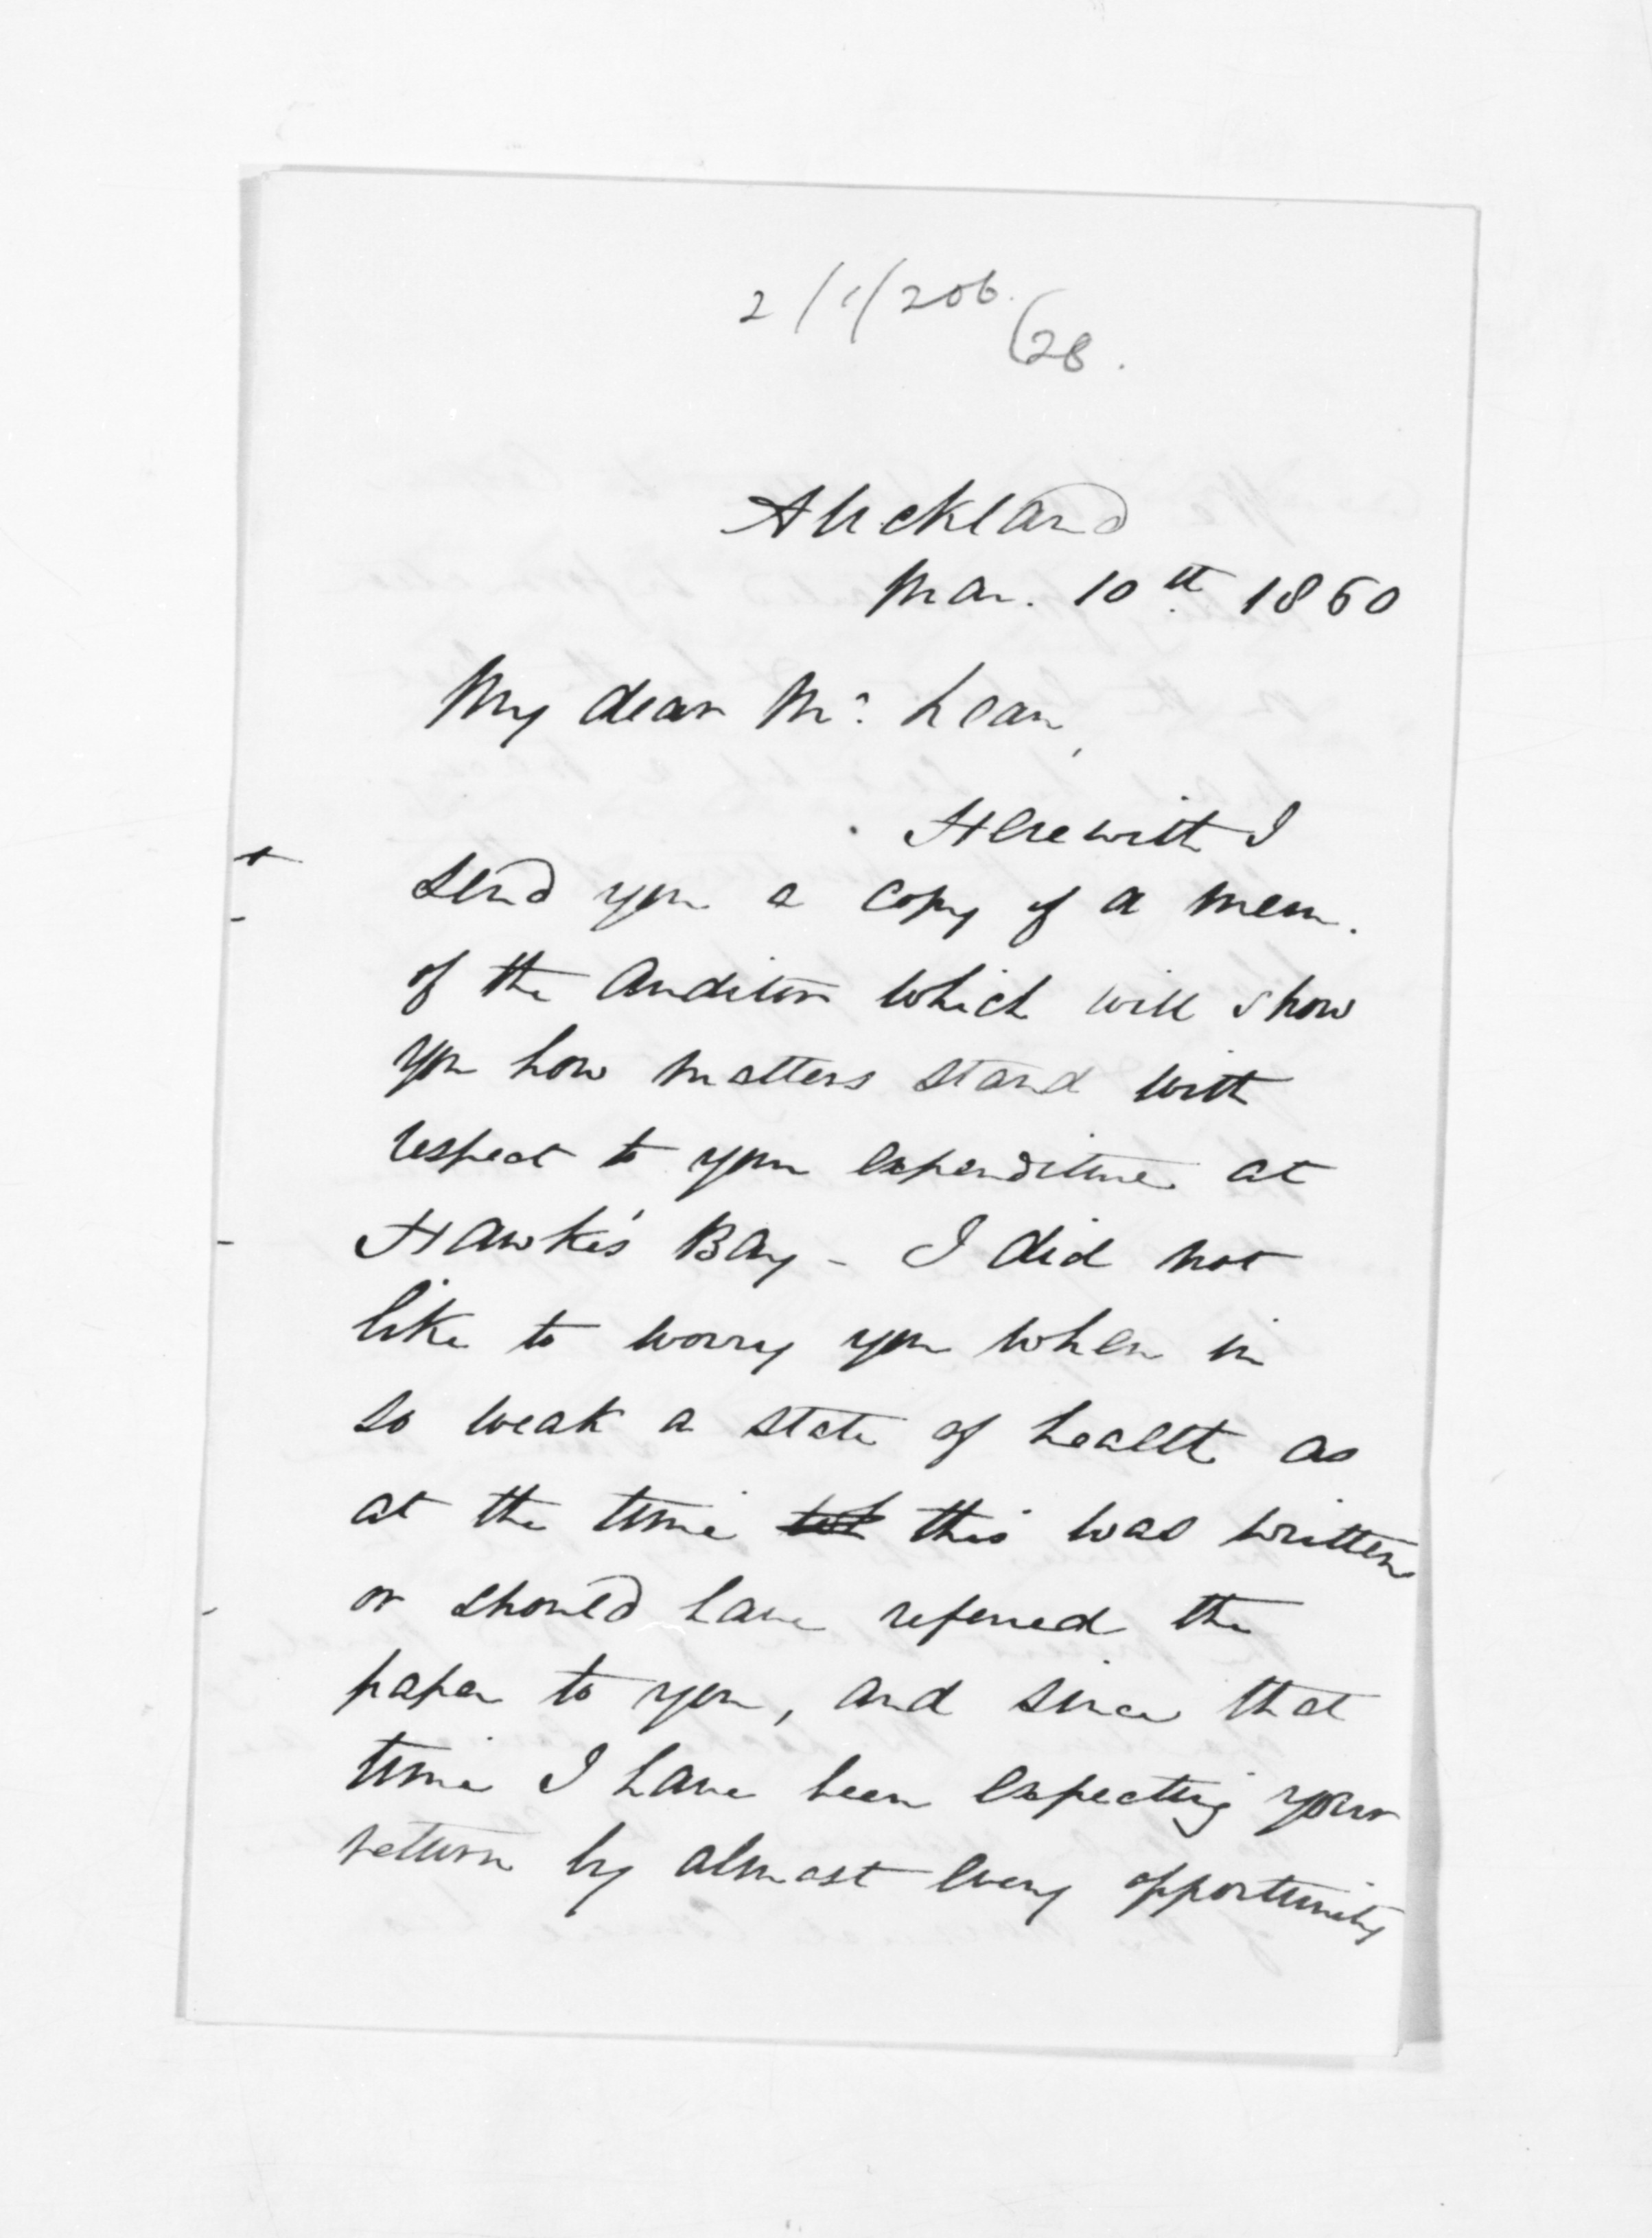 2/1/206
/28.
Auckland
Mar. 10th 1860
My dear Mc. Lean,
Herewith I
send you a copy of a mem.
of the Auditor which will show
you how matters stand with
respect to your expenditure at
Hawke's Bay - I did not
like to worry you when in
so weak a state of health as
at the time this was written
or should have referred the
paper to you, and since that
time I have been expecting your
return by almost every opportunity